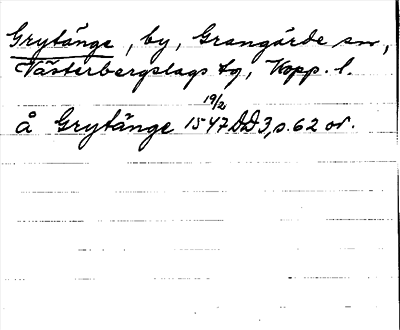 Grytänge, by, Grangärde sn,
Västerbergslags tg, Kopp. l.
19/2
å Grytänge 1547 DD3, s. 62 or.